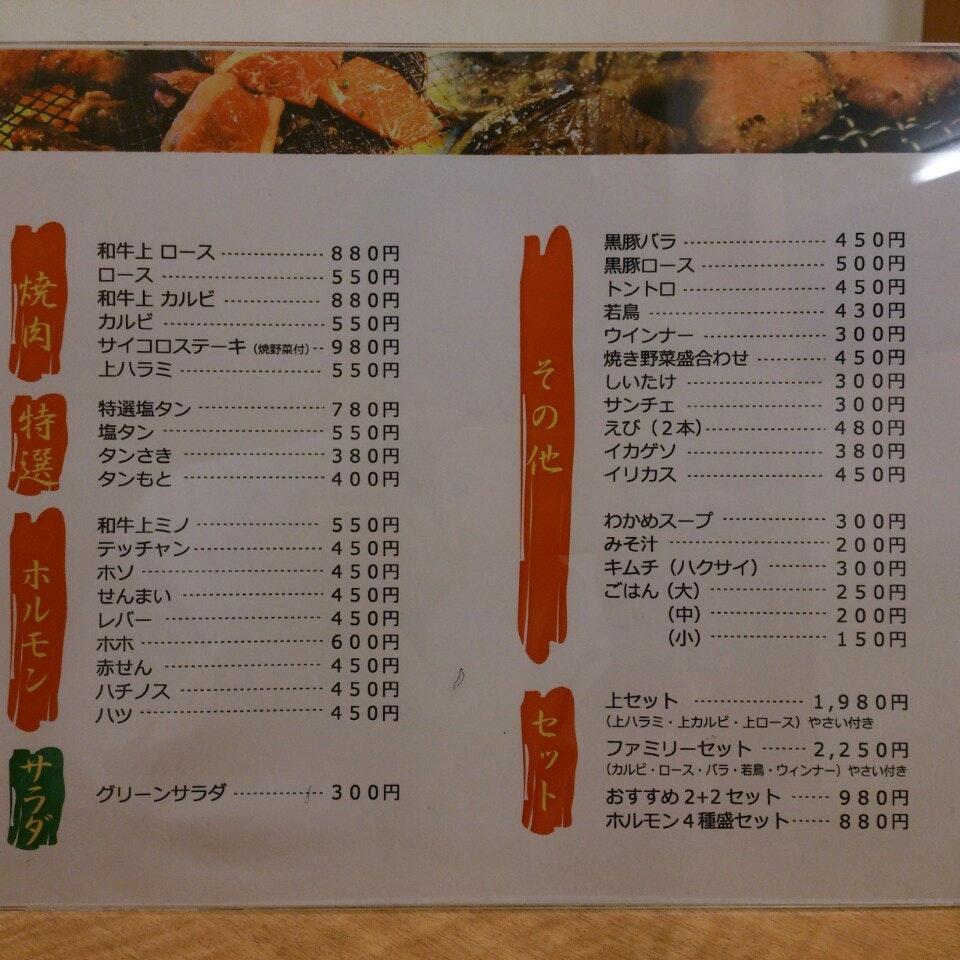 焼肉
和牛上 ロース ------------- 880円
ロース ------------- 550円
和牛上 カルビ ------------- 880円
カルビ ------------- 550円
サイコロステーキ（焼野菜付）-- 980円
上ハラミ ------------- 550円
特選
特選塩タン ------------- 780円
塩タン ------------- 550円
タンさき ------------- 380円
タンもと ------------- 400円
ホルモン
和牛上ミノ ------------- 550円
テッチャン ------------- 450円
ホソ ------------- 450円
せんまい ------------- 450円
レバー ------------- 450円
ホホ ------------- 600円
赤せん ------------- 450円
ハチノス ------------- 450円
ハツ ------------- 450円
サラダ
グリーンサラダ ------------- 300円
その他
黒豚バラ ------------- 450円
黒豚ロース ------------- 500円
トントロ ------------- 450円
若鳥 ------------- 430円
ウインナー ------------- 300円
焼き野菜盛合わせ ------------- 450円
しいたけ ------------- 300円
サンチェ ------------- 300円
えび（２本）------------- 480円
イカゲソ ------------- 380円
イリカス ------------- 450円
わかめスープ ------------- 300円
みそ汁 ------------- 200円
キムチ（ハクサイ）------- 300円
ごはん（大）------------- 250円
（中）------------- 200円
（小）------------- 150円
セット
上セット ------------- 1,980円
（上ハラミ・上カルビ・上ロース）やさい付き
ファミリーセット ------ 2,250円
（カルビ・ロース・バラ・若鳥・ウィンナー）やさい付き
おすすめ2+2セット ------ 980円
ホルモン４種盛セット------ 880円